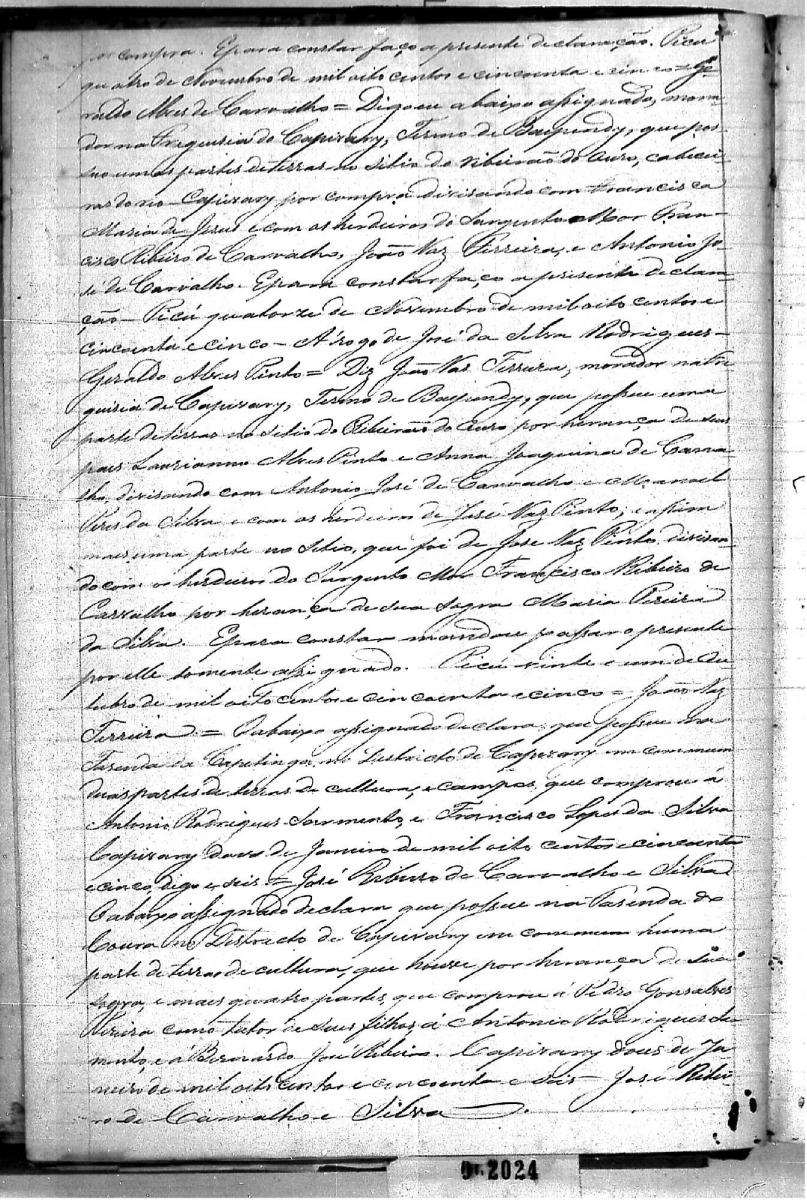 por compra. E para constar faço a presente declaração. Picú
quatro de Novembro de mil oito centos e cincoenta e cinco = Ge-
raldo Alves de Carvalho = Digo eu abaixo assignado, mora-
dor na Freguesia do Capivary, Termo de Baependy, que pos-
suo umas partes de terras no sitio do ribeirão do Ouro, cabecei-
ras do rio Capivary por compra divisando com Francisca
Maria de Jesus e com os herdeiros do Sargento Mor Fran-
cisco Ribeiro de Carvalho, João Vaz Ferreira, e Antonio Jo-
sé de Carvalho. E para constar faço a presente decla-
ração – Picú quatorze de Novembro de mil oito centos e
cincoenta e cinco – A rogo de José da Silva Rodrigues –
Geraldo Alves Pinto = Diz João Vaz Ferreira, morador na Fre
guesia de Capivary, Termo de Baependy, que possue uma
parte de terras no sitio do Ribeirão do Ouro por herança de seus
pais Laurianno Alves Pinto e Anna Joaquina de Carva-
lho, divisando com Antonio José de Carvalho e Manoel
Pires da Silva e com os herdeiros de José Vaz Pinto, e assim
mais uma parte no Sitio, que foi de José Vaz Pinto, divisan-
do com os herdeiros do Sargento Mor Francisco Ribeiro de
Carvalho por herança de sua Sogra Maria Pereira
da Silva. E para constar mandou passar o presente
por elle somente assignado. Picú vinte e um de Ou
tubro de mil oito centos e cincoenta e cinco = João Vaz
Ferreira. = O abaixo assignado declara, que possue na
Fazenda da Capetinga, no Districto de Capivary em commum
duas partes de terras de cultura, e campos, que comprou á
Antonio Rodrigues Sarmento, e Francisco Lopes da Silva
Capivary dous de Janeiro de mil oito centos e cincoenta
e cinco, digo e seis = José Ribeiro de Carvalho e Silva
O abaixo assignado declara que possue na Fazenda do
Coura no Districto de Capivary em commum huma
parte de terras de cultura, que houve por herança de sua
Sogra, e mais quatro partes, que comprou á Pedro Gonsalves
Pereira como tutor de seus filhos á Antonio Rodrigues Sar
mento, e á Bernardo José Ribeiro. Capivary dous de Ja-
neiro de mil oito centos e cincoenta e seis – José Ribei
ro de Carvalho e Silva
2024